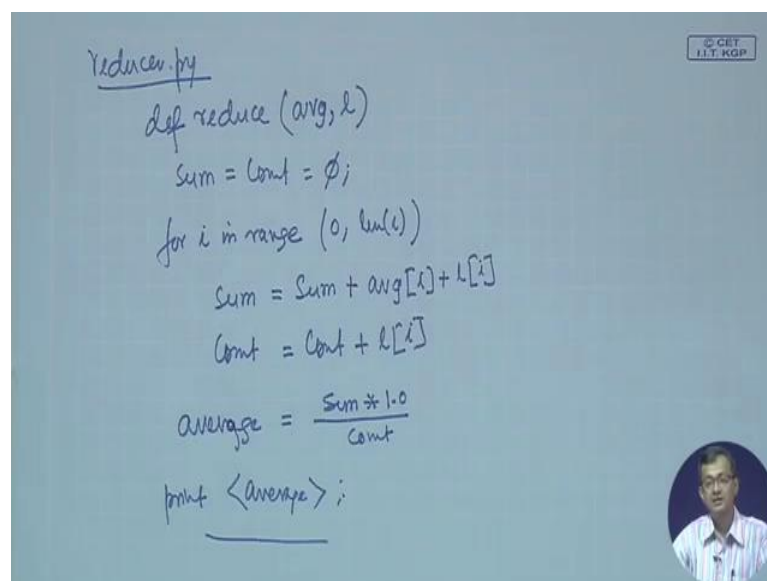 reducer.py
© CET
I.I.T. KGP
def reduce (avg, l)
sum = Count = 0;
for i in range (0, len(l))
sum = Sum + avg[i] + l[i]
Count = Count + l[i]
average = sum * 1.0
Count
print <average> ;